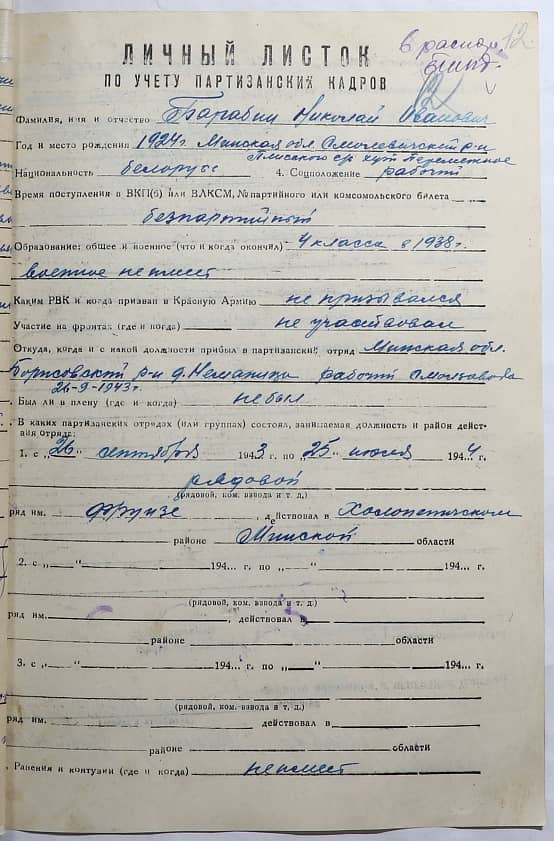 12
в распор.
БШПД
ЛИЧНЫЙ ЛИСТОК
ПО УЧЕТУ ПАРТИЗАНСКИХ КАДРОВ
Фамилия, имя и отчество Барабин Николай Иванович
Год и место рождения 1924г. Минская обл. Смолевичский р-н
Плисского с/с хут. Перемежное
Национальность белорус 4. Соцположение рабочий
Время поступления в ВКП(б) или ВЛКСМ, № партийного или комсомольского билета
безпартийный
Образование: общее и военное (что и когда окончил) 4 класса в 1938г.
военное не имеет
Каким РВК и когда призван в Красную Армию не призывался
Участие на фронтах (где и когда) не участвовал
Откуда, когда и с какой должности прибыл в партизанский отряд Минская обл.
Борисовский р-н д. Неманица рабочий
26-9-1943г.
. Был ли в плену (где и когда) не был
. В каких партизанских отрядах (или группах) состоял, занимаемая должность и район дейст-
вия отряда:
1. с „26“ сентября 1943 г. по „25“ июня 1944 г.
рядовой
(рядовой, ком. взвода и т. д.)
ряд им. Фрунзе, действовал в Холопеничском
районе Минской области
2. с „ “ 194... г. по „ “ 194... г.
(рядовой, ком. взвода и т. д.)
ряд им. , действовал в
районе области
3. с „ “ 194... г. по „ “ 194... г.
(рядовой, ком. взвода и т. д.)
ряд им. действовал в
районе области
. Ранения и контузии (где и когда) не имеет